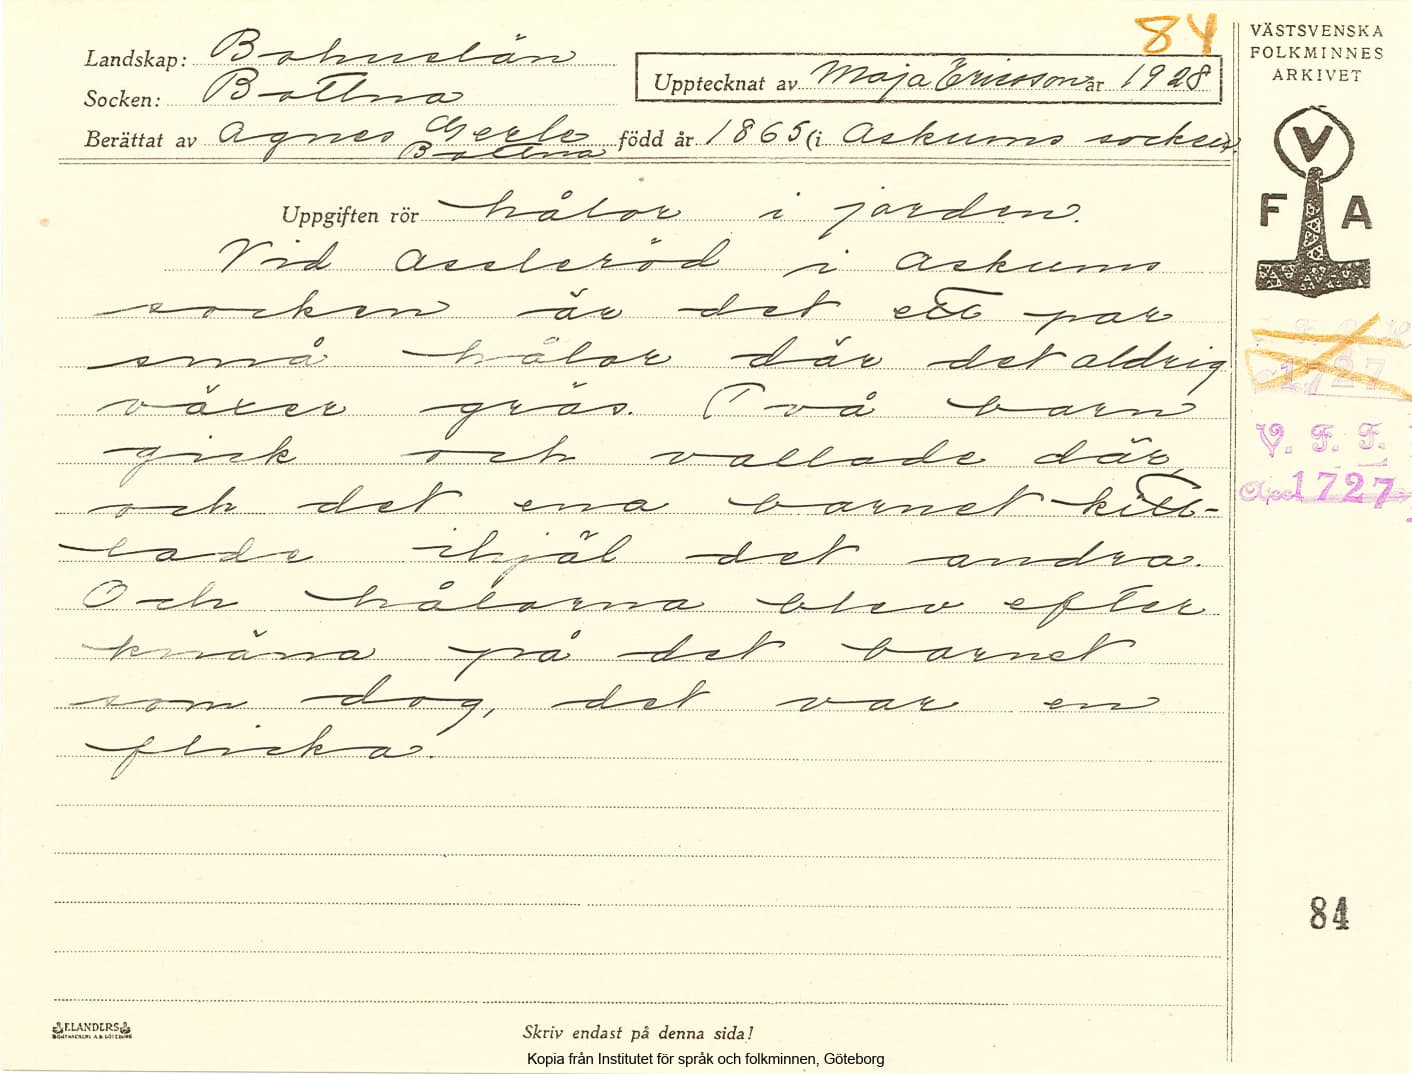 84
VÄSTSVENSKA
FOLKMINNES
ARKIVET
Landskap: Bohuslän
Socken: Bottna
Upptecknat av Maja Ericsson år 1928
Berättat av Agnes Gerle född år 1865 (i Askums socken).
Bottna
V
F A
Uppgiften rör hålor i jorden.
Vid Assleröd i Askums
socken är det ett par
små hålor där det aldrig
växer gräs. Två barn
gick och vallade där,
och det ena barnet kitt-
lade ihjäl det andra.
Och hålorna blev efter
knäna på det barnet
som dog, det var en
flicka.
1727
V. F. F.
Acc 1727
84
ELANDERS
BOKTRYCKERI A.B. GÖTEBORG
Skriv endast på denna sida!
Kopia från Institutet för språk och folkminnen, Göteborg